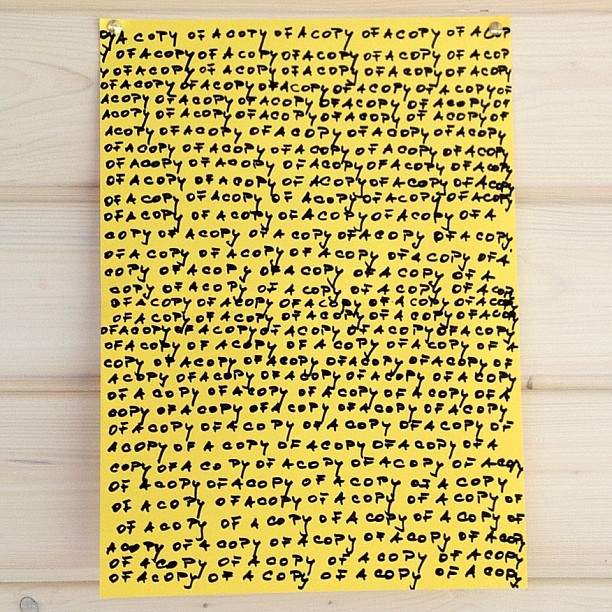 OF A COPY OF A COPY OF A COPY OF A COPY OF A COP
OF A COPY OF A COPY OF A COPY OF A COPY OF A COP
Y OF A COPY OF A COPY OF A COPY OF A COPY OF A COPY
OF A COPY OF A COPY OF A COPY OF A COPY OF A COPY OF
A COPY OF A COPY OF A COPY OF A COPY OF A COPY OF
A COPY OF A COPY OF A COPY OF A COPY OF A COPY OF
A COPY OF A COPY OF A COPY OF A COPY OF A COPY
OF A COPY OF A COPY OF A COPY OF A COPY OF A COPY
OF A COPY OF A COPY OF A COPY OF A COPY OF A COPY
OF A COPY OF A COPY OF A COPY OF A COPY OF A COPY
OF A COPY OF A COPY OF A COPY OF A COPY OF A COPY
OF A COPY OF A COPY OF A COPY OF A COPY OF A
COPY OF A COPY OF A COPY OF A COPY OF A COPY
OF A COPY OF A COPY OF A COPY OF A COPY OF A
COPY OF A COPY OF A COPY OF A COPY OF A
COPY OF A COPY OF A COPY OF A COPY OF A COPY
OF A COPY OF A COPY OF A COPY OF A COPY OF A COPY
OF A COPY OF A COPY OF A COPY OF A COPY OF A COPY
OF A COPY OF A COPY OF A COPY OF A COPY OF A COPY
OF A COPY OF A COPY OF A COPY OF A COPY OF A COPY
COPY OF A COPY OF A COPY OF A COPY OF A COPY OF
A COPY OF A COPY OF A COPY OF A COPY OF A COPY
OF A COPY OF A COPY OF A COPY OF A COPY OF A
COPY OF A COPY OF A COPY OF A COPY OF A COPY
OF A COPY OF A COPY OF A COPY OF A COPY OF
A COPY OF A COPY OF A COPY OF A COPY OF A
COPY OF A COPY OF A COPY OF A COPY OF A COPY
OF A COPY OF A COPY OF A COPY OF A COPY
OF A COPY OF A COPY OF A COPY OF A COPY OF
OF A COPY OF A COPY OF A COPY OF A COPY OF
A COPY OF A COPY OF A COPY OF A COPY OF A COPY
OF A COPY OF A COPY OF A COPY OF A COPY OF A COPY
OF A COPY OF A COPY OF A COPY OF A COPY